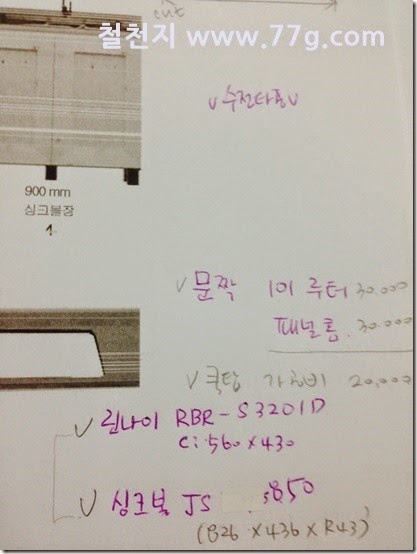 철천지 www.77g.com
cut
V 수전타공 V
900 mm
싱크볼장
1.
V 문짝 101 루터 30.000
패널룸. 30.000
V 쿡탑 가공비 20,000
V 린나이 RBR-S3201D
C: 560 x 430
V 싱크볼 JS 850
(826 x 436 x R43)